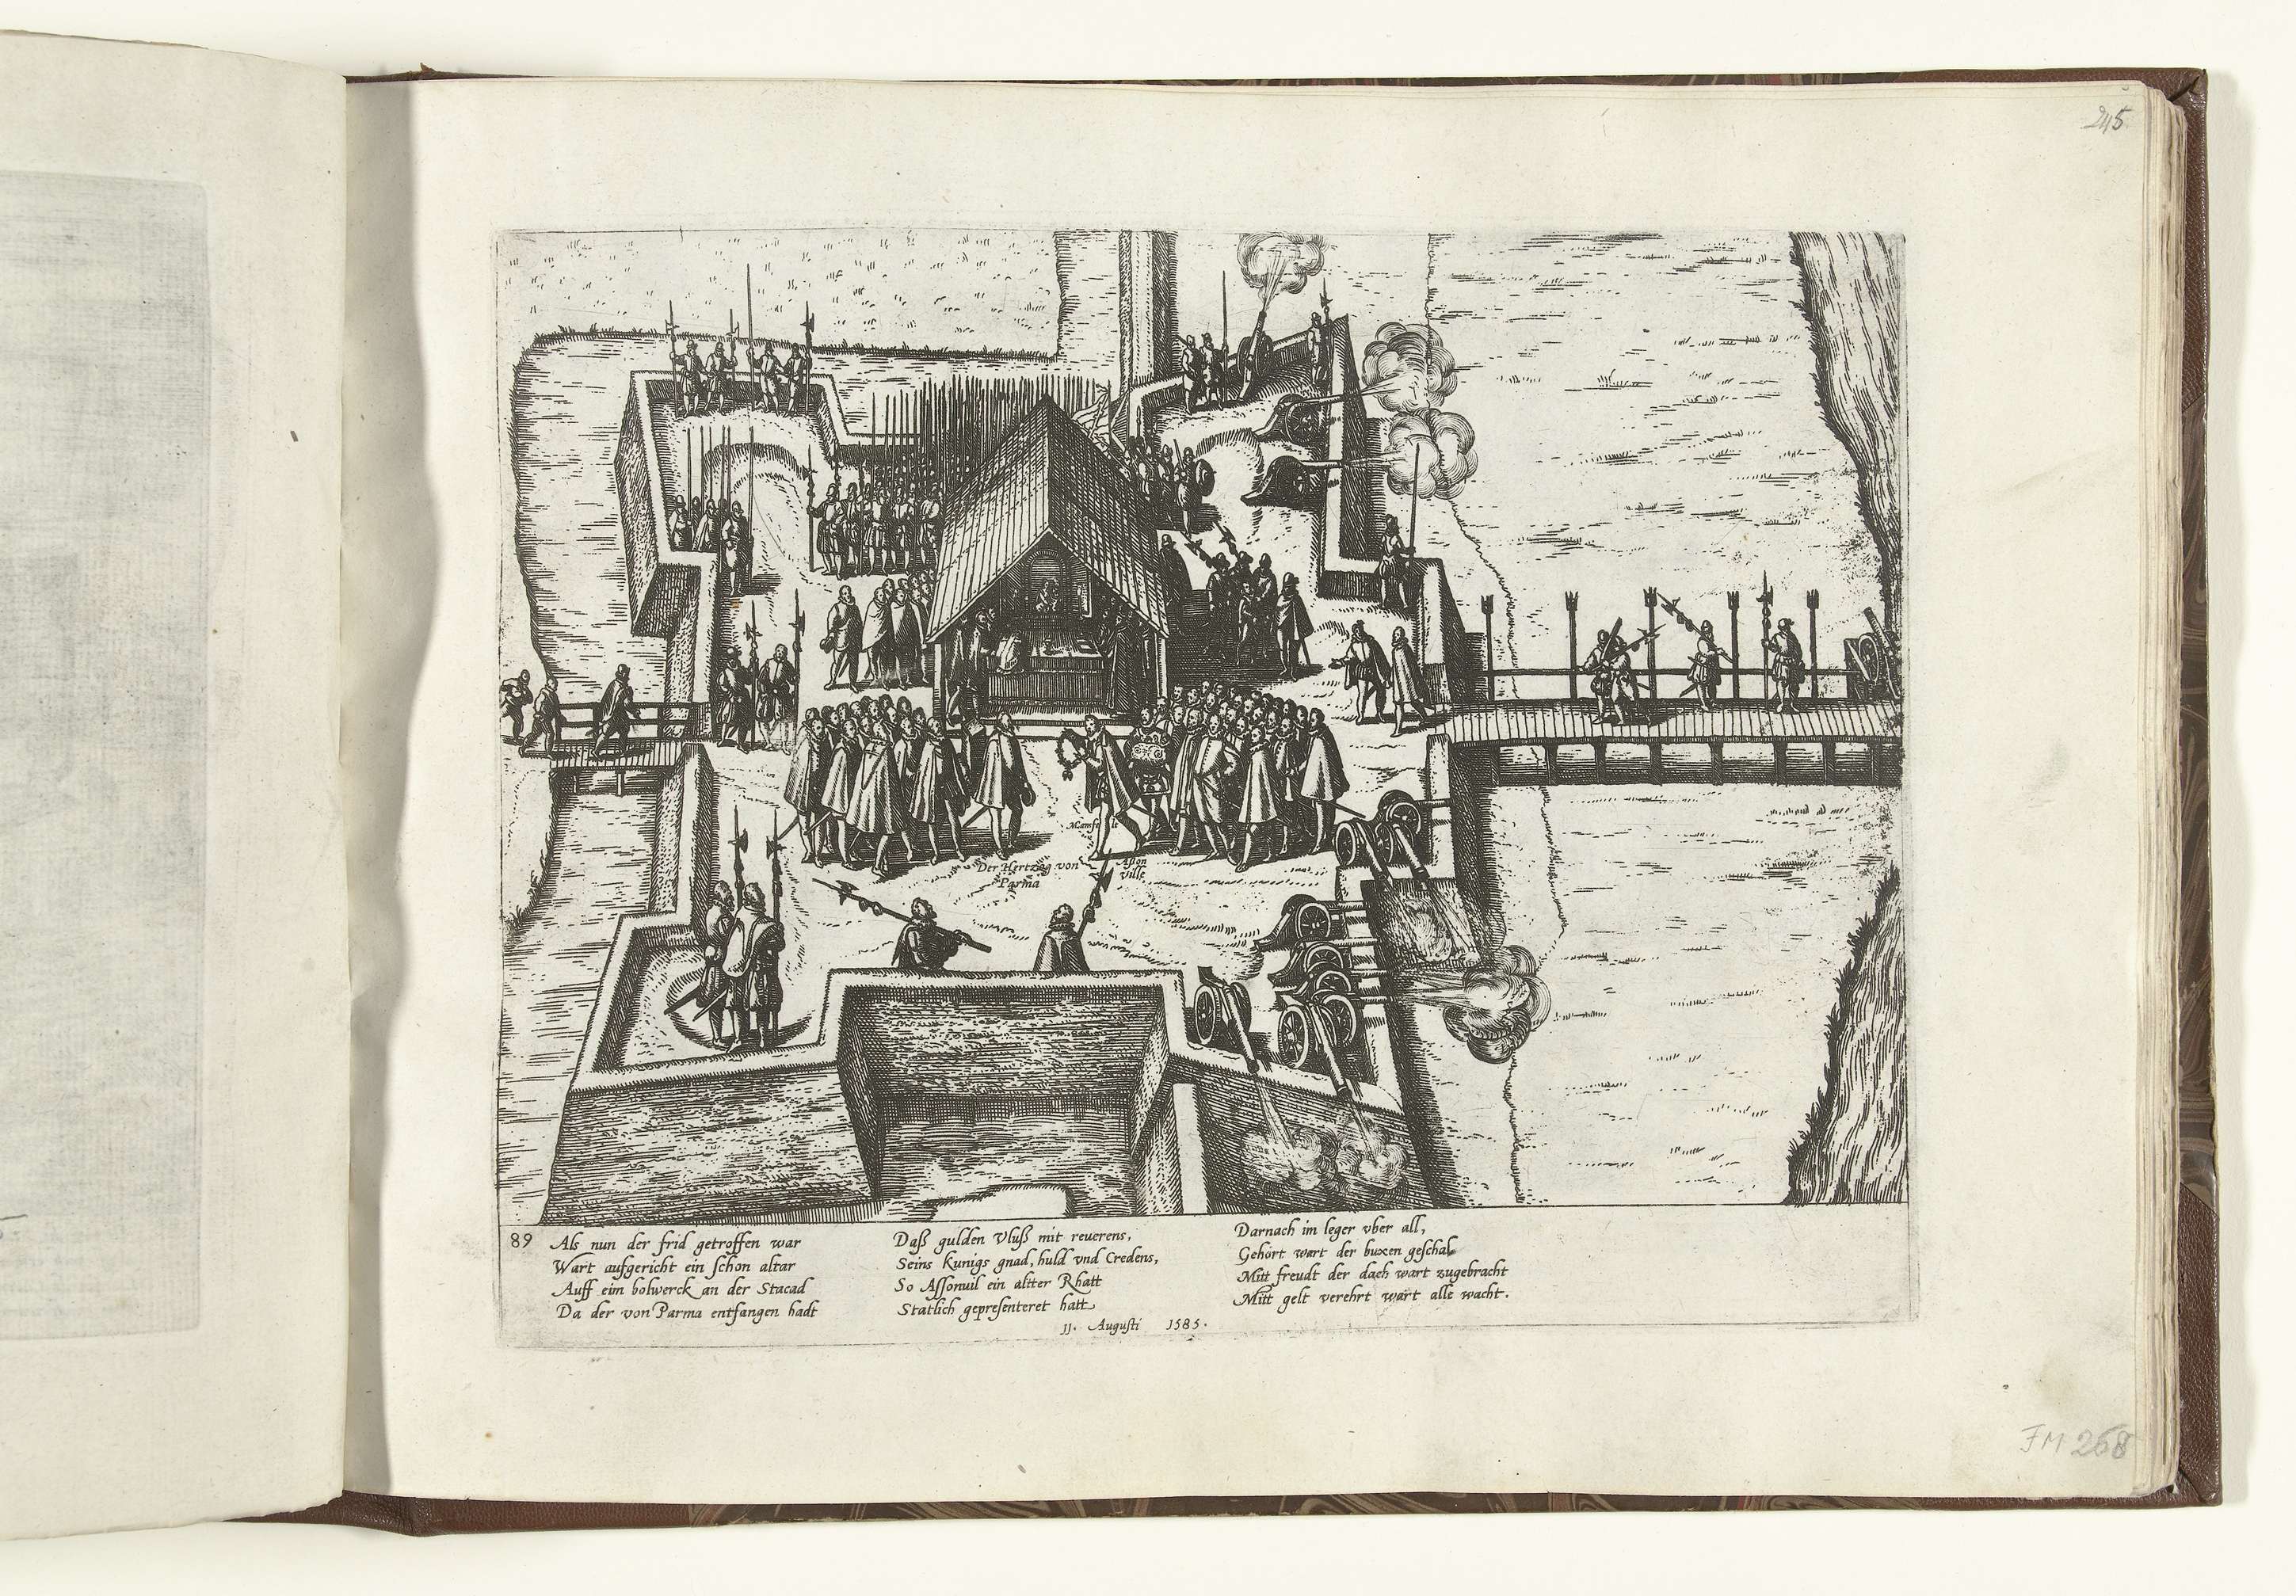 245
Mansfelt
Der Hertzog von
Parma
Asson
ville
89
Als nun der frid getroffen war
Wart aufgericht ein schon altar
Auff eim bolwerck an der Stacad
Da der von Parma entfangen hadt
Daß gulden Vluß mit reuerens,
Seins Kunigs gnad, huld vnd Credens,
So Assonuil ein altter Rhatt
Statlich gepresenteret hatt
Darnach im leger vber all,
Gehort wart der buxen geschal
Mitt freudt der dach wart zugebracht
Mitt gelt verehrt wart alle wacht.
11. Augusti 1585.
FM 268